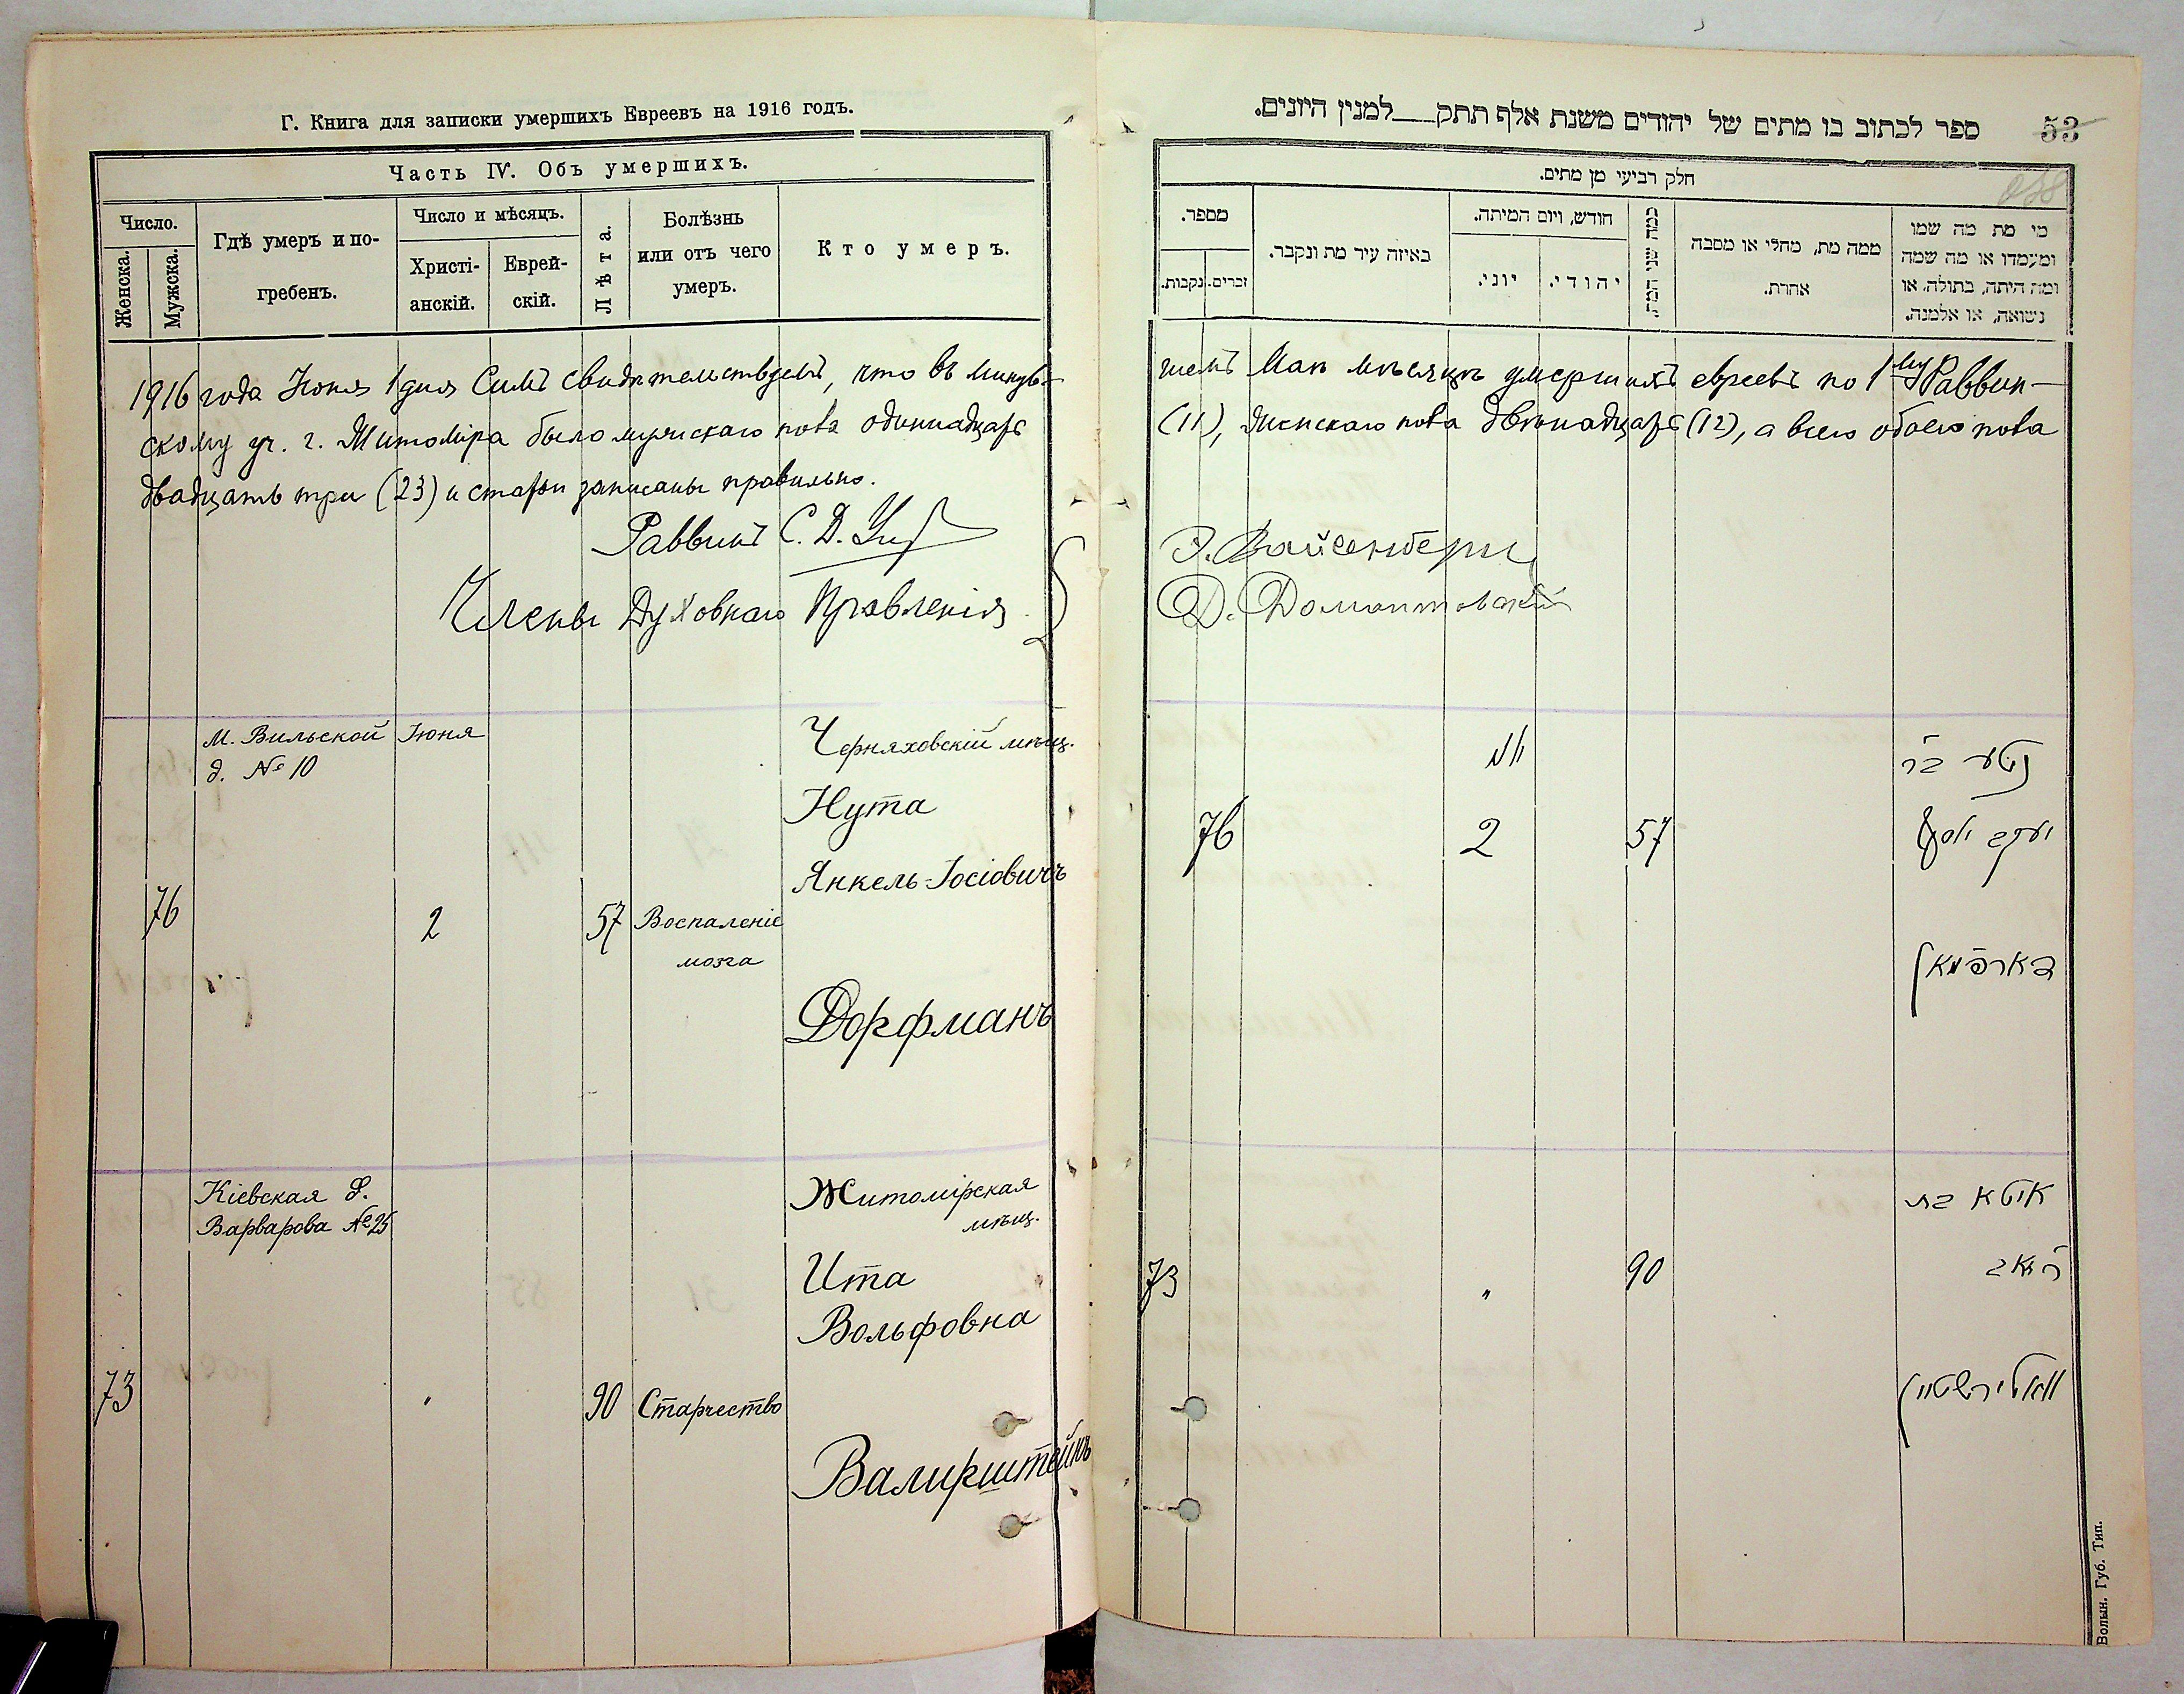 Г. Книга для записки умершихъ Евреевъ на 1916 годъ.
Часть IV. Объ умершихъ.
Число.
Женска.
Мужска.
Гдѣ умеръ и по-
гребенъ.
Число и мѣсяцъ.
Христі-
анскій.
Еврей-
скій.
Лѣта.
Болѣзнь
или отъ чего
умеръ.
Кто умеръ.
1916 года Іюня 1 дня Симъ свидѣтельствуемъ, что въ минув-
скому уч. г. Житоміра было мужскаго пола одинадцать
двадцать три (23) и статьи записаны правильно.
Раввинъ С. Д.
Члены Духовнаго Правленія
М. Вильской
д. № 10
Іюня
Черняховскій мѣщ.
Нута
Янкель-Іосіовичъ
76
2
57
Воспаленіе
мозга
Дорфманъ
Кіевская д.
Варварова № 25
Житомірская
мѣщ.
Ита
Вольфовна
73
"
90
Старчество
Валирштейнъ
ספר לכתוב בו מתים של יהודים משנת אלף תתק למנין היונים.
53
חלק רביעי מן מתים.
מספר.
נקבות.
זכרים.
באיזה עיר מת ונקבר.
חודש, ויום המיתה.
יוני.
יהודי.
כמה שני המת.
ממה מת, מחלי או מסבה
אחרת.
מי מת מה שמו
ומעמדו או מה שמה
ומה היתה, בתולה, או
נשואה, או אלמנה.
шемъ Маѣ мѣсяцѣ умершихъ евреевъ по 1му Раввин-
(11), женскаго пола двѣнадцать (12), а всего обоего пола
Э. Вайсенбергъ
Д. Домонтовскій
יוני
נוטע בר
76
2
57
יעקב יוסף
דארפמאן
איטא בת
73
"
90
וואלירשטיין
Волын. Губ. Тип.